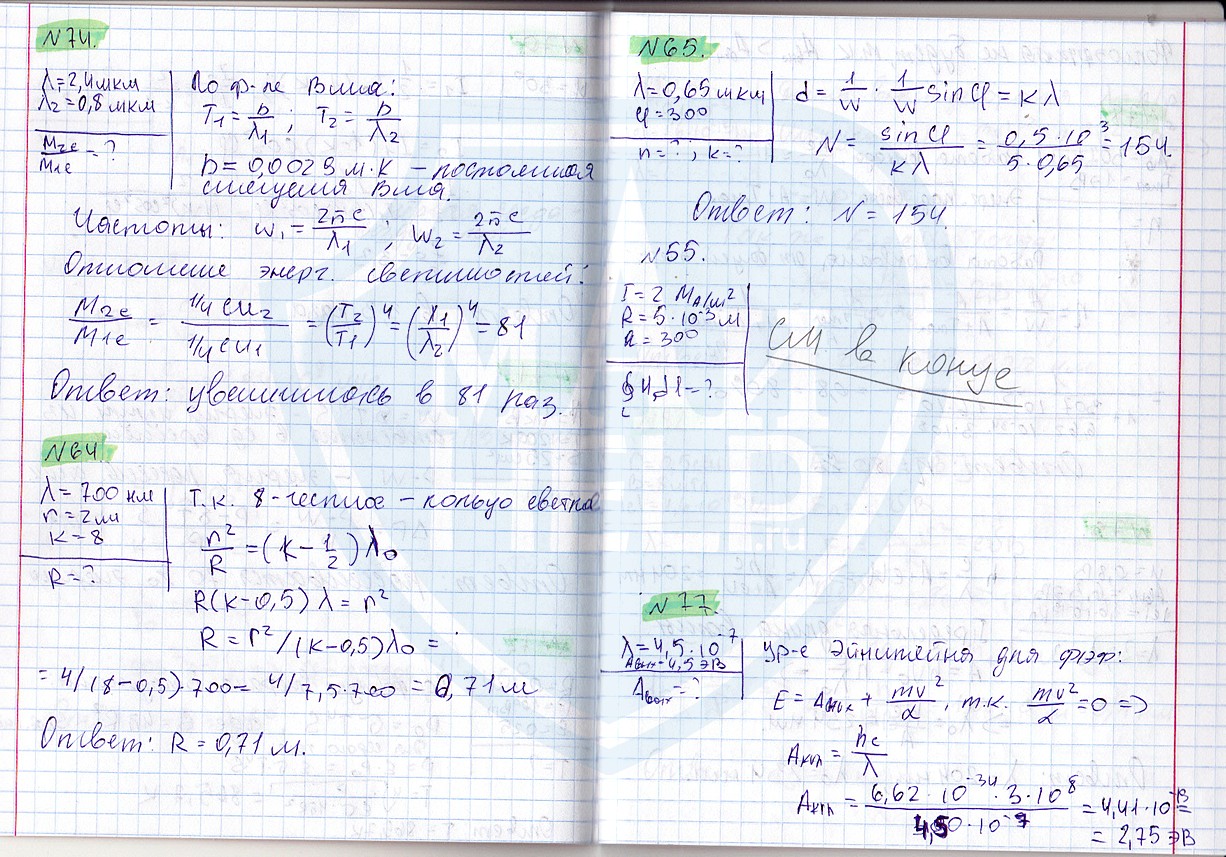 N74.
λ₁=2,4мкм
λ₂=0,8 мкм
M₂e/M₁e = ?
По ф-ле Вина:
T₁ = b/λ₁ ; T₂ = b/λ₂
b = 0,0029 м·К – постоянная
смещения Вина.
Частоты: w₁ = 2πc/λ₁ ; w₂ = 2πc/λ₂
Отношение энерг. светимостей:
M₂e/M₁e = 1/4 cu₂ / 1/4 cu₁ = (T₂/T₁)⁴ = (λ₁/λ₂)⁴ = 81
Ответ: увеличилось в 81 раз.
N64
λ = 700 нм
r = 2мм
k = 8
R = ?
Т.к. 8-честное – кольцо светлое
r²/R = (k - 1/2) λ₀
R(k-0,5) λ = r²
R = r²/(k-0,5)λ₀ =
= 4/(8-0,5)·700 = 4/7,5·700 = 0,71 м
Ответ: R = 0,71 м.
N65.
λ = 0,65 мкм
φ = 30°
n = ? ; k = ?
d = 1/w · 1/w sin φ = kλ
N = sin φ / kλ = 0,5·10³ / 5·0,65 = 154.
Ответ: N = 154.
N55.
I = 2 МА/м²
R = 5·10⁻³ м
α = 30°
∮ H dl - ?
L
см в конце
N77.
λ = 4,5·10⁻⁷
Aвых = 4,5 эВ
Aвых = ?
Ур-е Эйнштейна для фэф:
E = Aвых + mv²/2, т.к. mv²/2 = 0 =>
Aвых = hc/λ
Aвых = 6,62·10⁻³⁴·3·10⁸ / 4,50·10⁻⁷ = 4,41·10⁻¹⁹ =
= 2,75 эВ